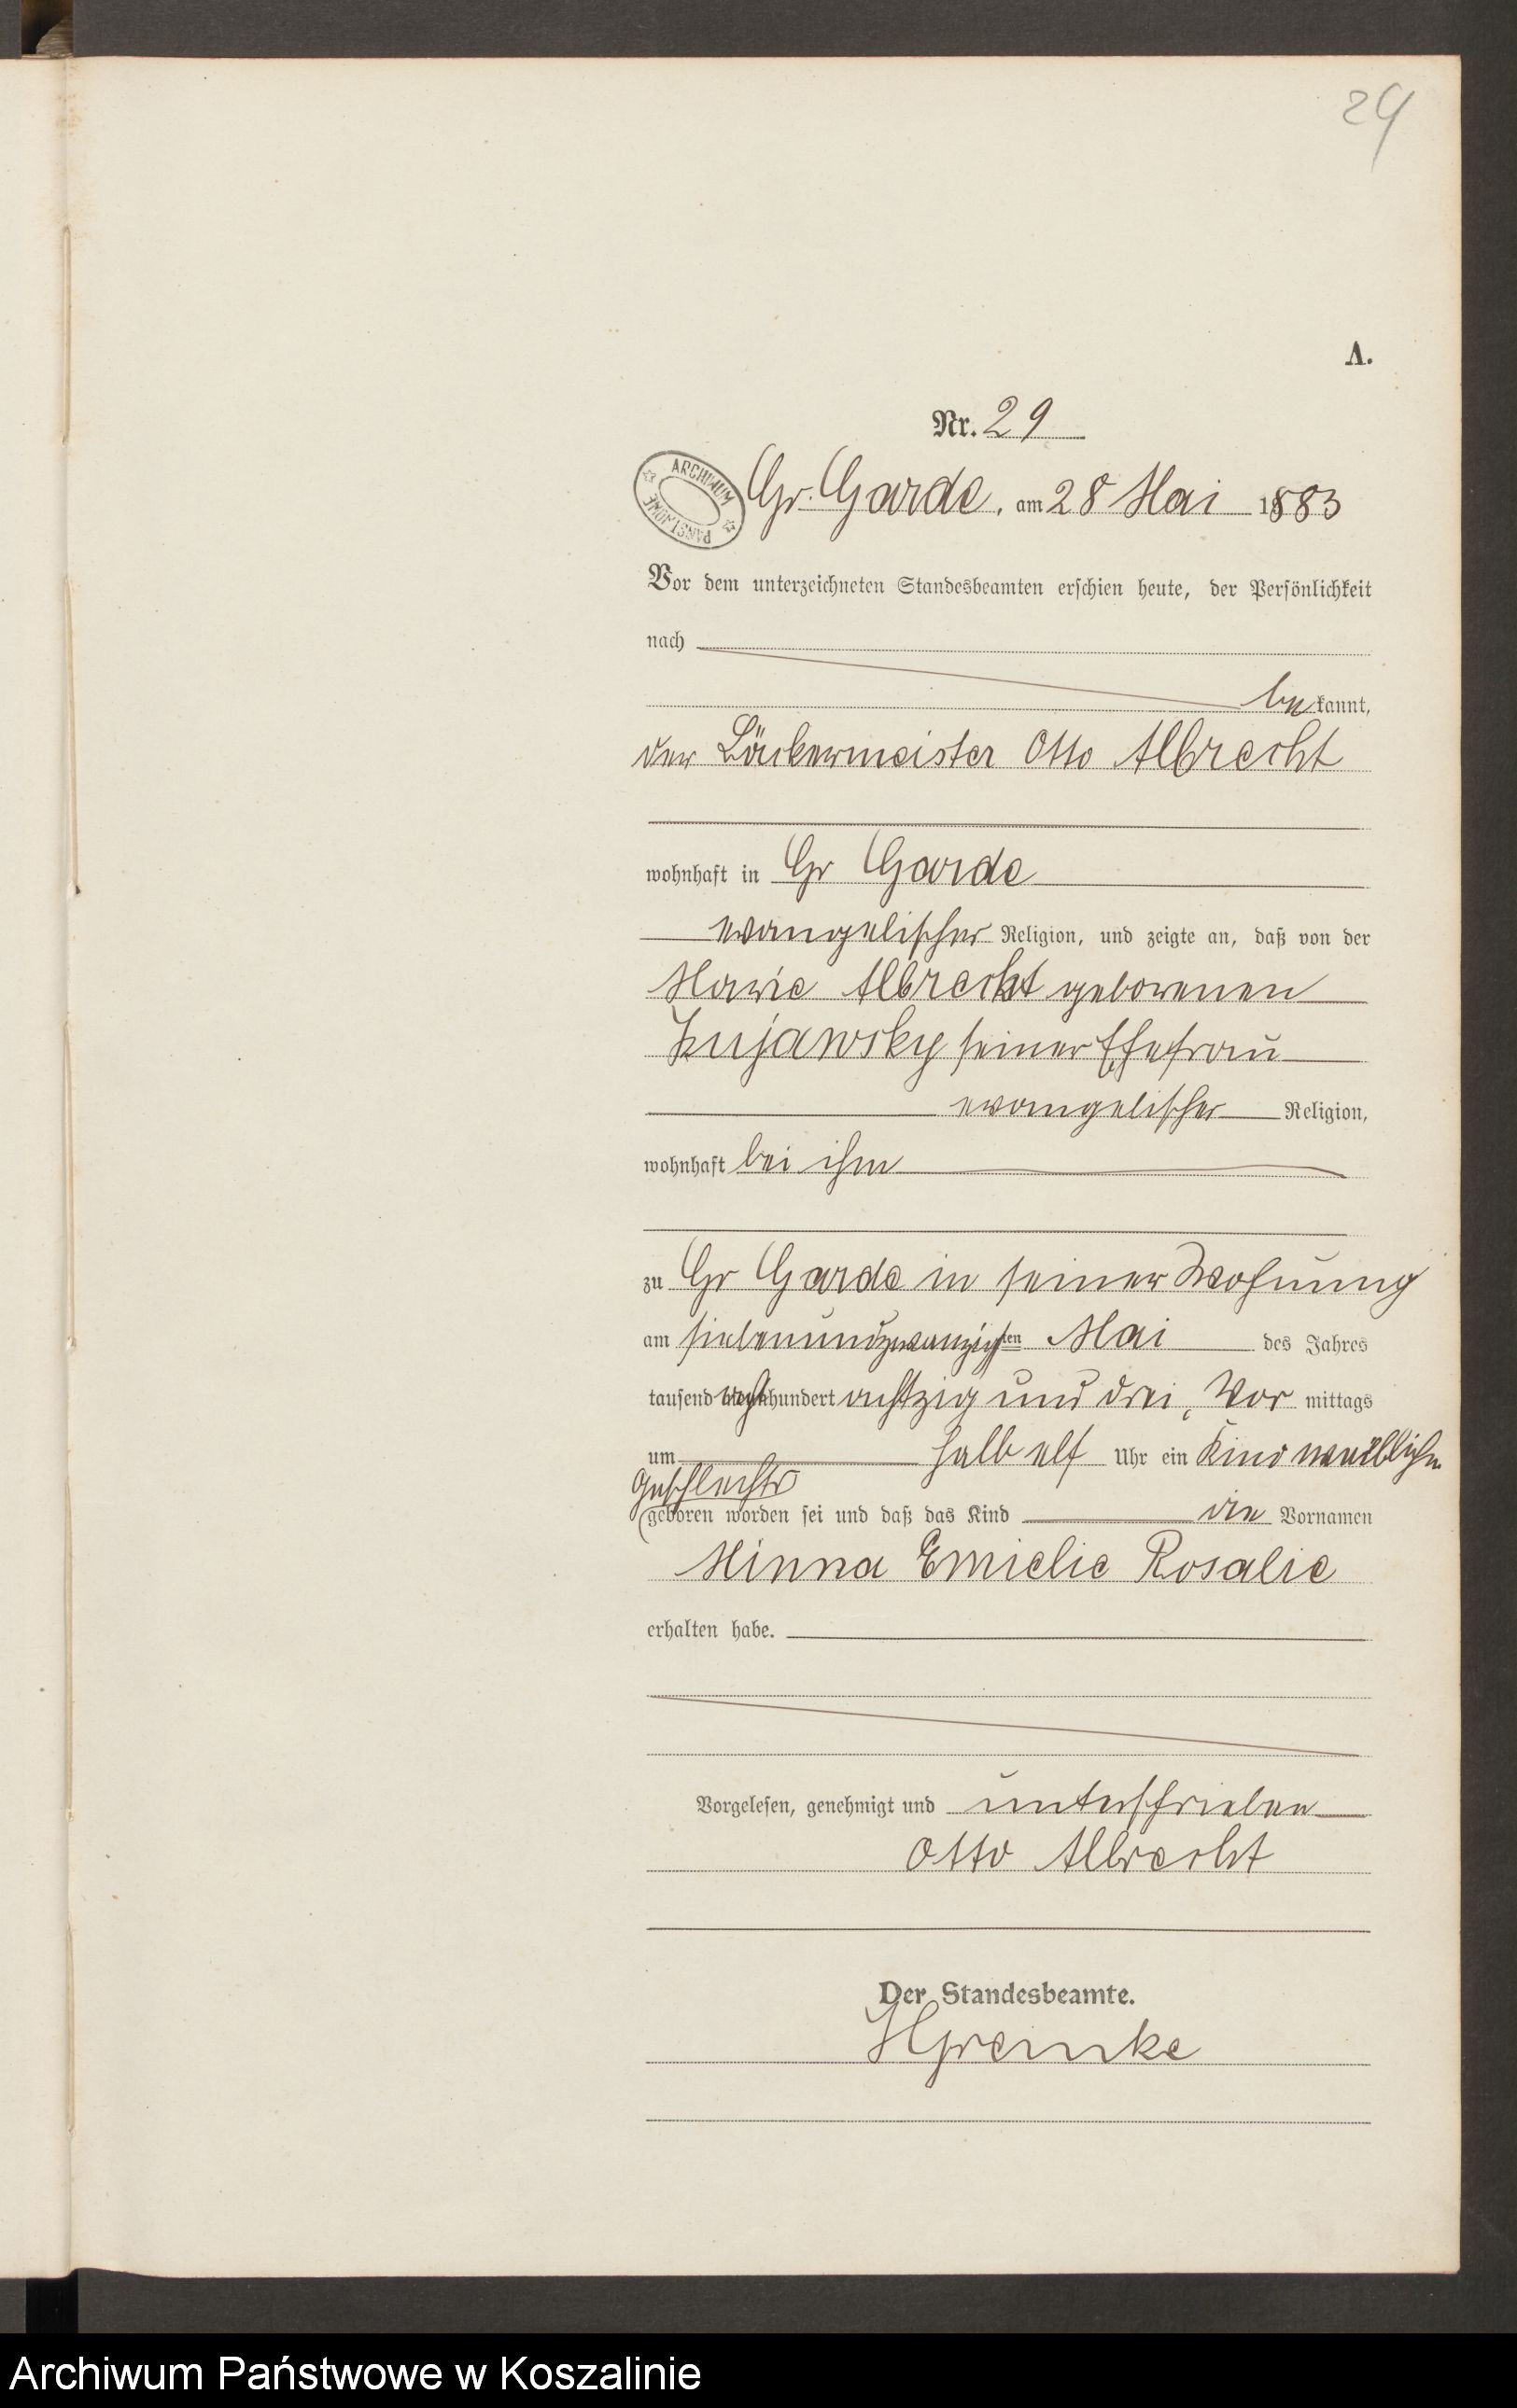 29
A.
Nr. 29
ARCHIWUM PAŃSTWOWE
Gr. Garde, am 28 Mai 1883
Vor dem unterzeichneten Standesbeamten erschien heute, der Persönlichkeit
nach
bekannt,
der Bäckermeister Otto Albrecht
wohnhaft in Gr Garde
evangelischer Religion, und zeigte an, daß von der
Marie Albrecht geborenen
Kujawsky seiner Ehefrau
evangelischer Religion,
wohnhaft bei ihm
zu Gr Garde in seiner Wohnung
am siebenundzwanzigsten Mai des Jahres
tausend achthundert achtzig und drei, Vor mittags
um halb elf Uhr ein Kind weiblichen
Geschlechts
geboren worden sei und daß das Kind die Vornamen
Minna Emielie Rosalie
erhalten habe.
Vorgelesen, genehmigt und unterschrieben
Otto Albrecht
Der Standesbeamte.
Archiwum Państwowe w Koszalinie